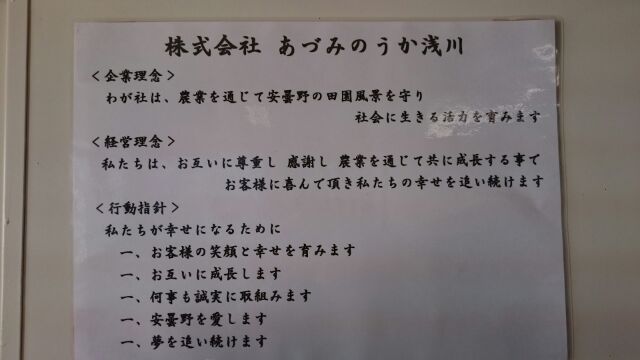 株式会社 あづみのうか浅川
<企業理念>
わが社は、農業を通じて安曇野の田園風景を守り
社会に生きる活力を育みます
<経営理念>
私たちは、お互いに尊重し 感謝し 農業を通じて共に成長する事で
お客様に喜んで頂き私たちの幸せを追い続けます
<行動指針>
私たちが幸せになるために
一、お客様の笑顔と幸せを育みます
一、お互いに成長します
一、何事も誠実に取組みます
一、安曇野を愛します
一、夢を追い続けます